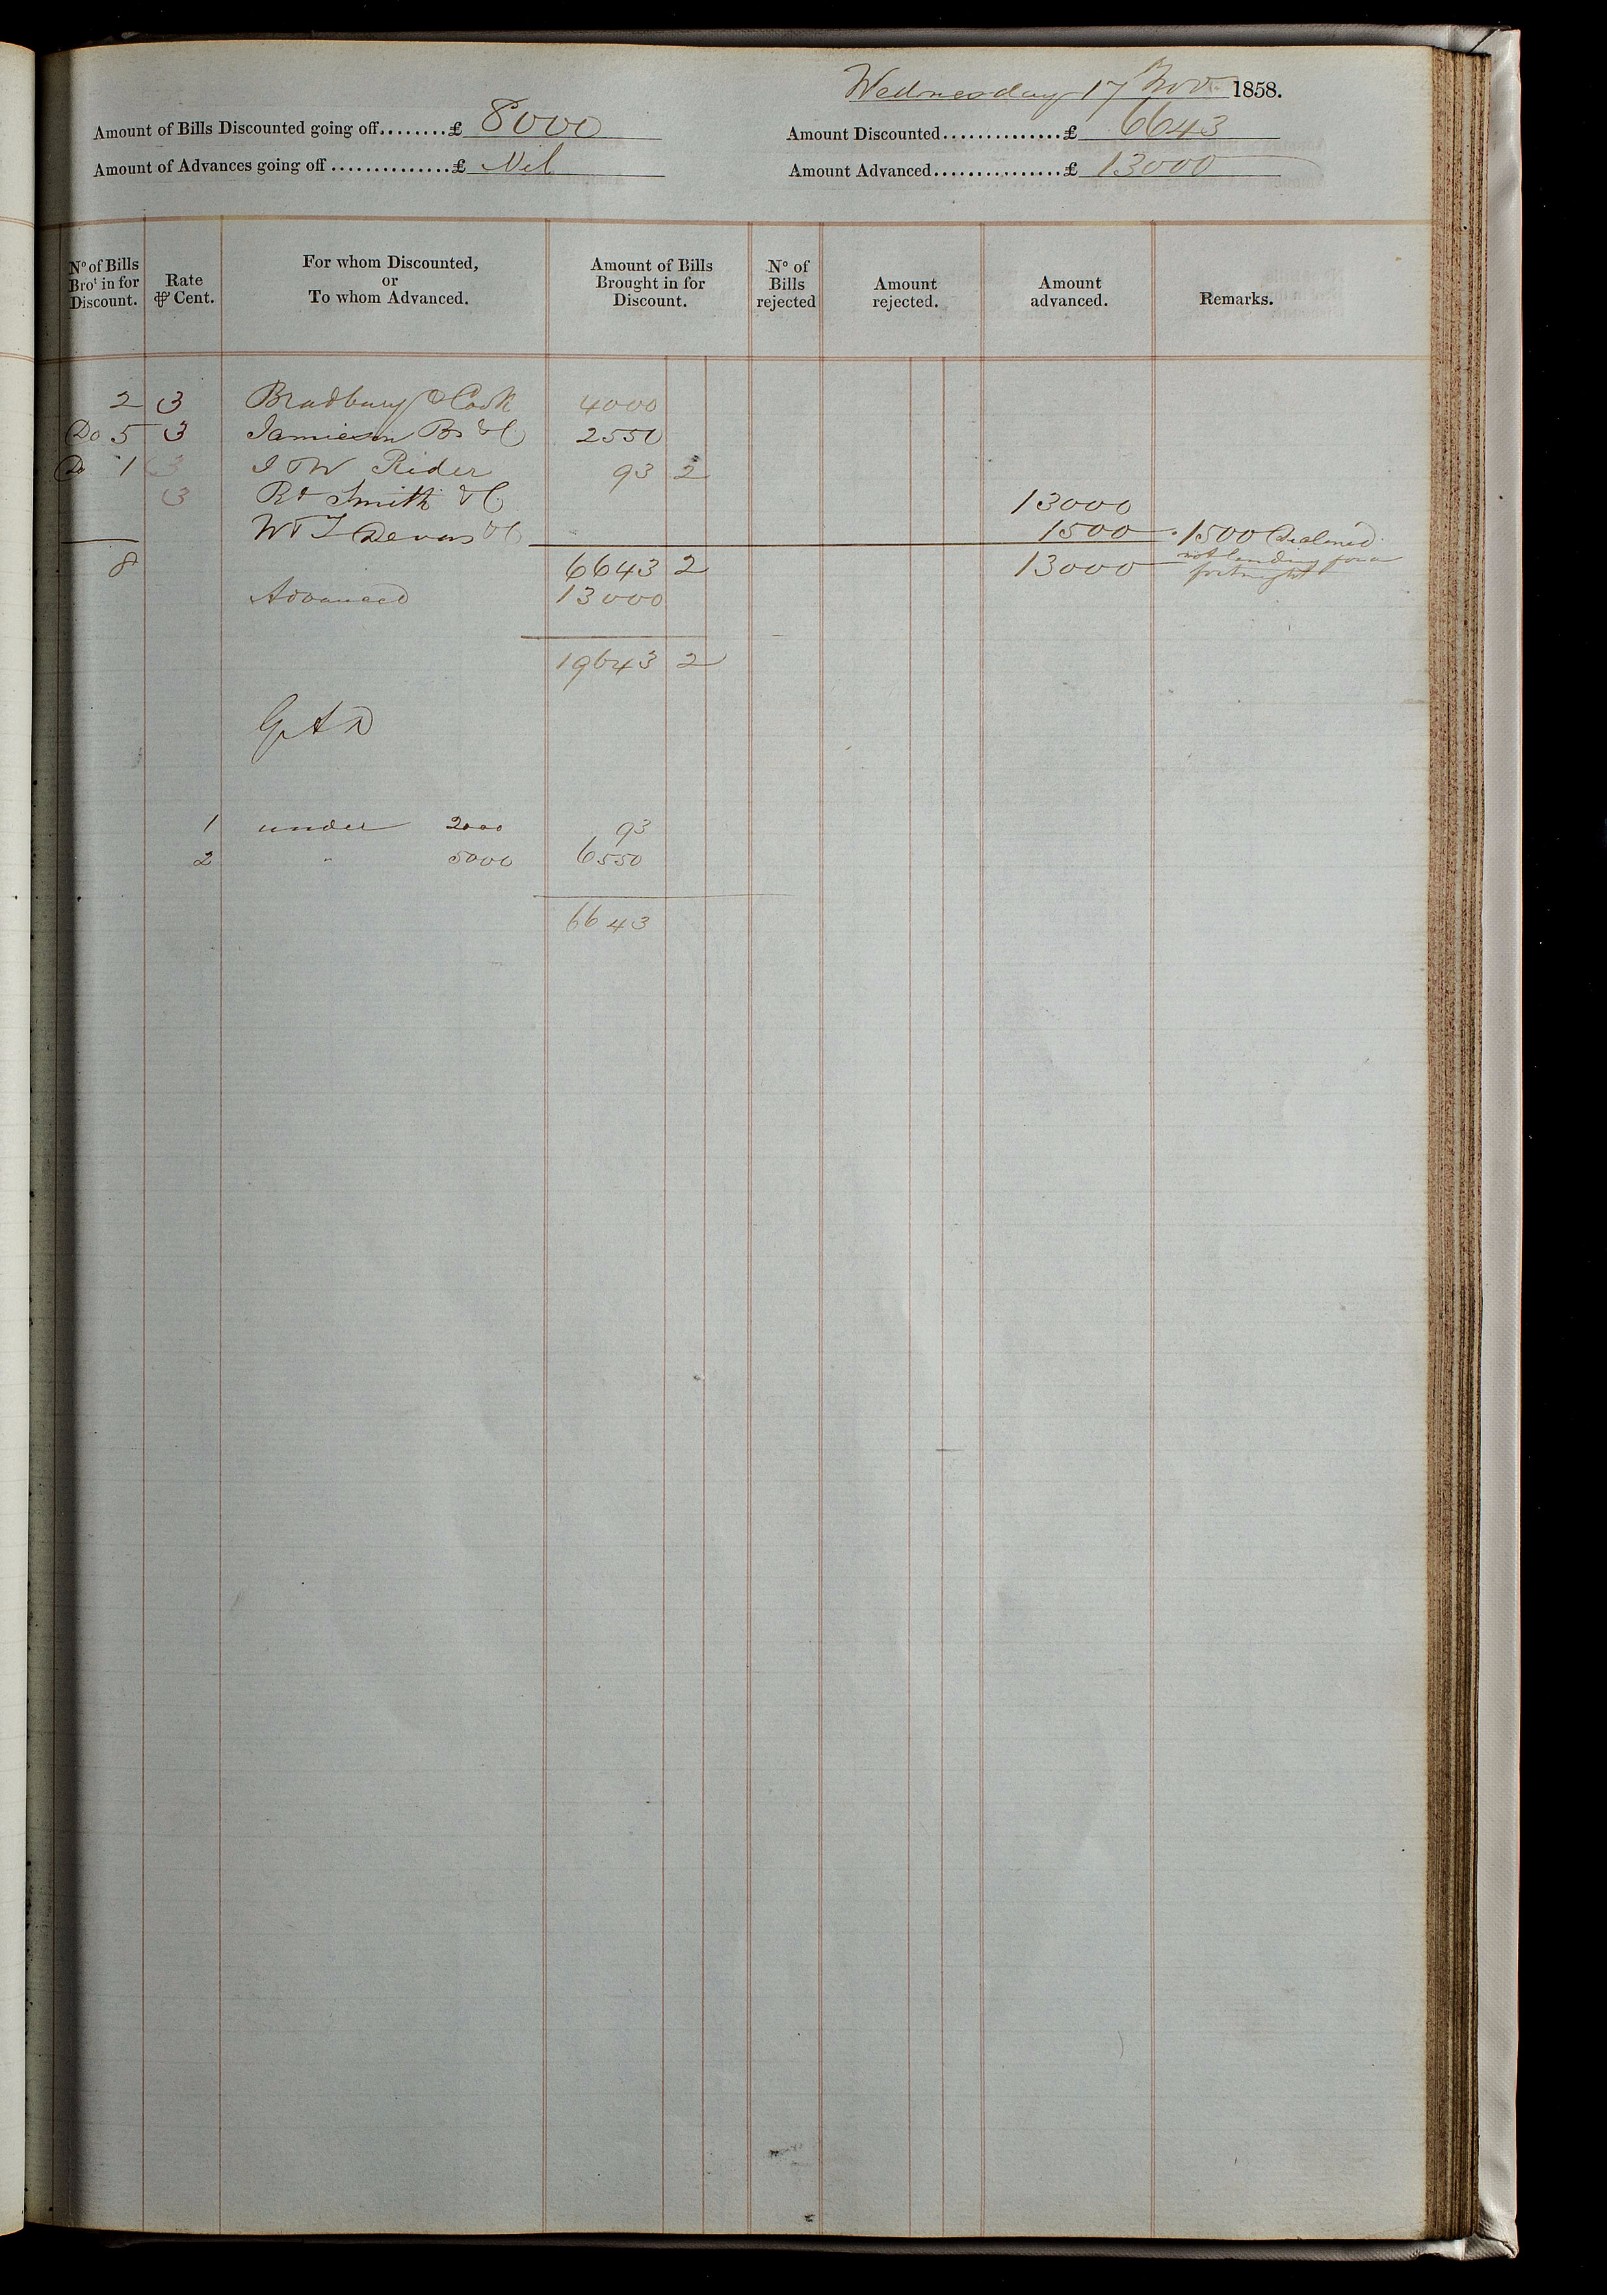 Wednesday 17 Nov 1858.
Amount of Bills Discounted going off........£ 8000
Amount Discounted..............£ 6643
Amount of Advances going off..............£ Nil
Amount Advanced................£ 13000
No of Bills Brot in for Discount.
Rate ⅌ Cent.
For whom Discounted, or To whom Advanced.
Amount of Bills Brought in for Discount.
No of Bills rejected
Amount rejected.
Amount advanced.
Remarks.
2 3 Bradbury & Cook 4000
Do 5 3 Jamieson Bs & C 2550
Do 1 3 J & W Rider 93 2
3 Rt Smith & C 13000
W & T Devas & C 1500 1500 Declined
not lending for a
fortnight
8 6643 2 13000
Advanced 13000
19643 2
1 under 2000 93
2 " 5000 6550
6643